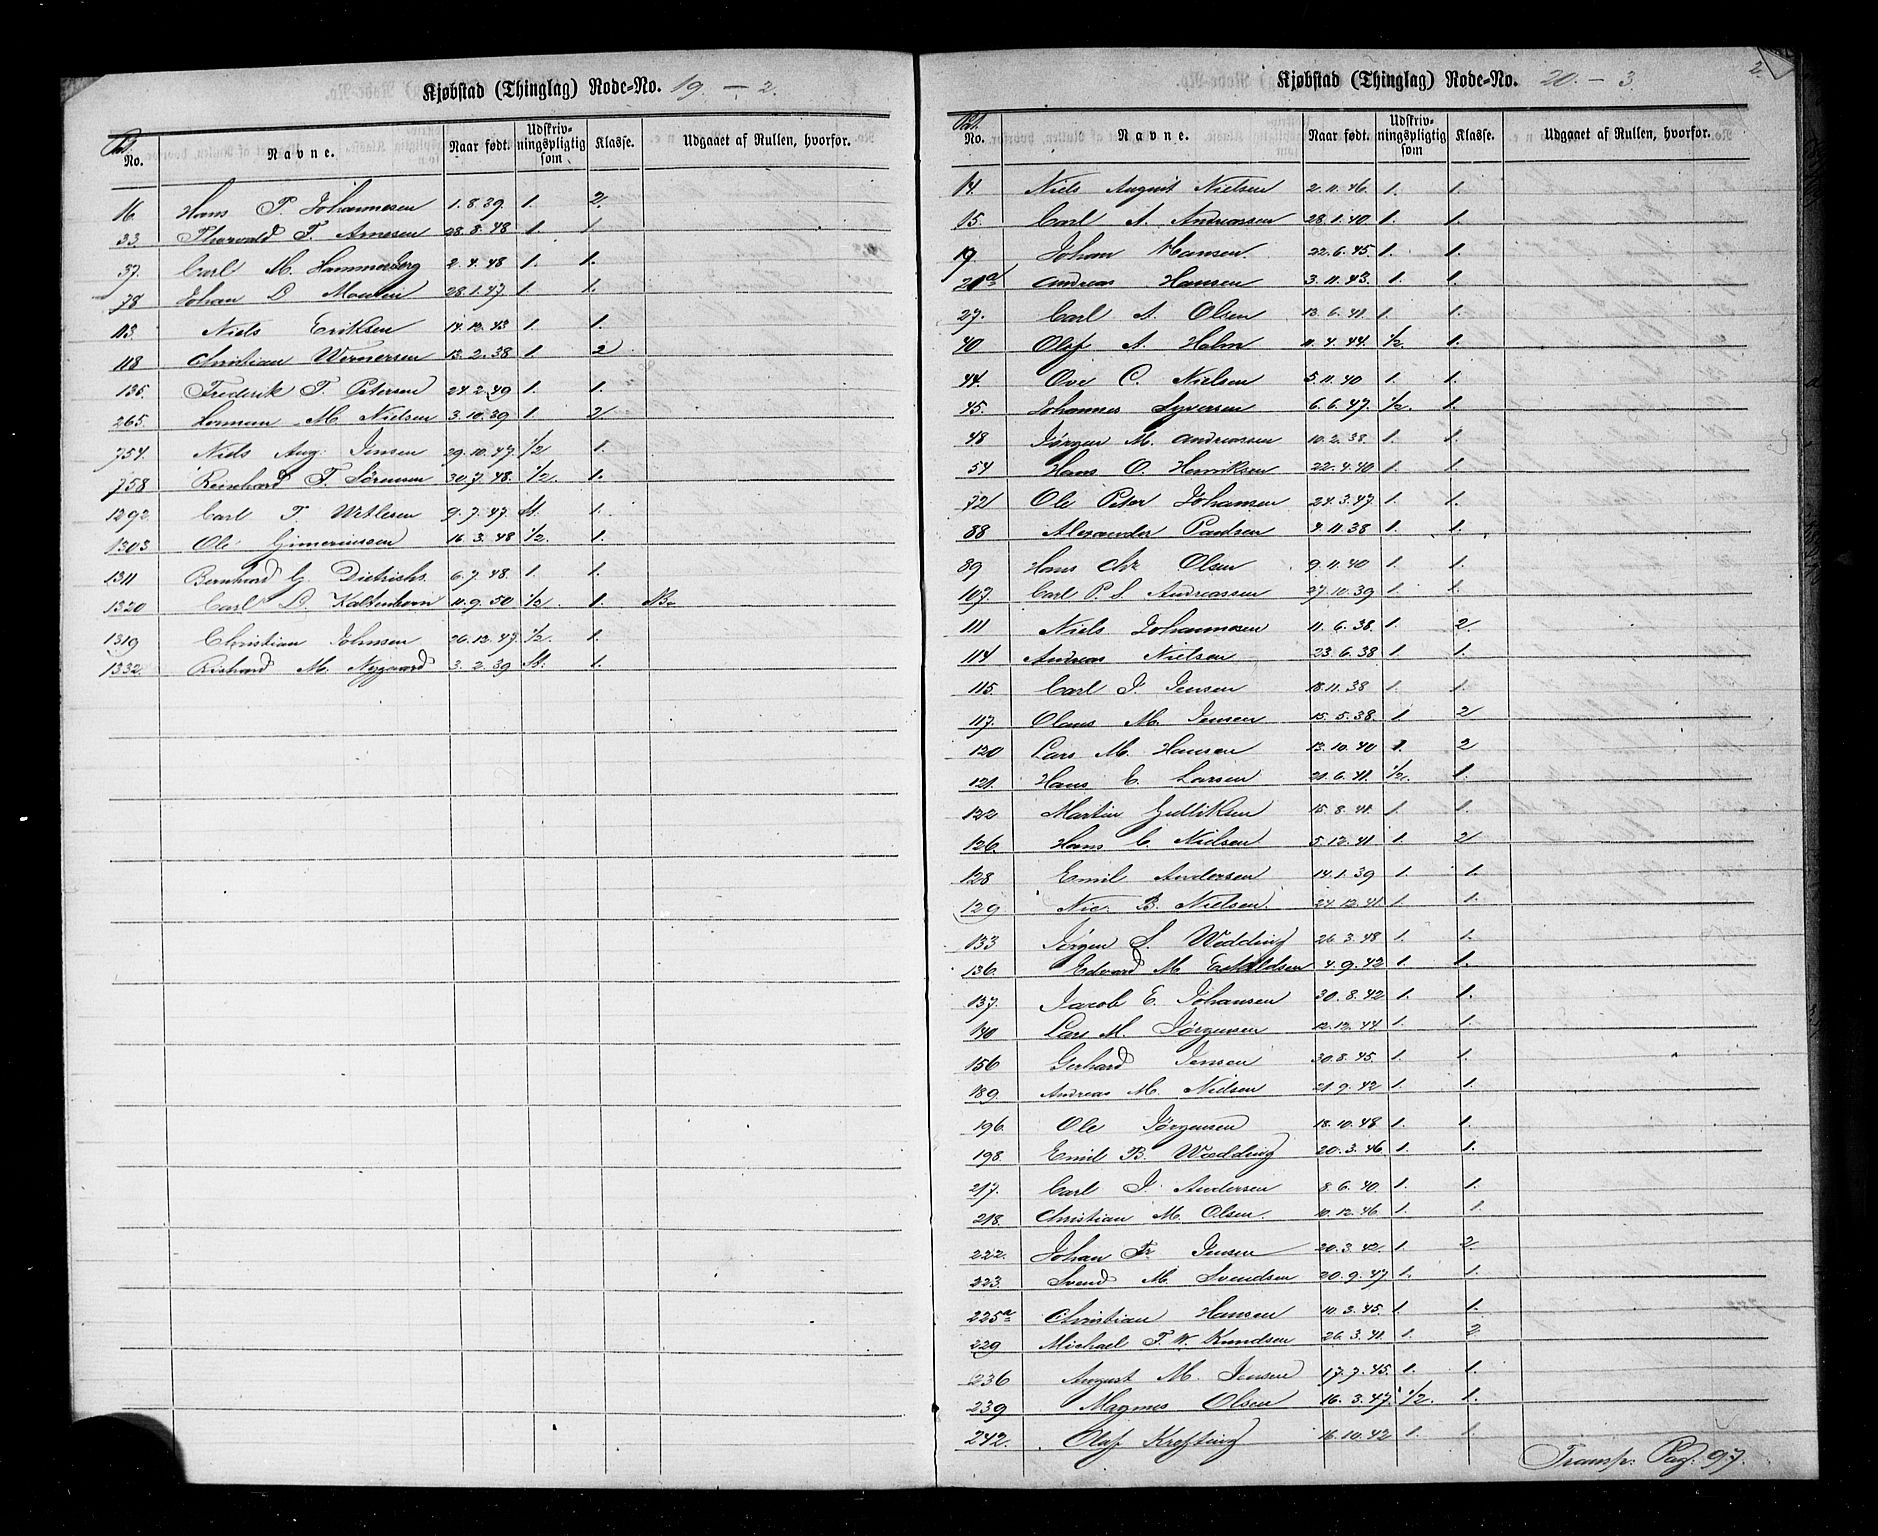 Kjøbstad (Thinglag) Rode-No. 19 - 2.
Pat. No. Navne. Naar født. Udskrivningspligtig som Klasse. Udgaaet af Rullen, hvorfor.
16 Hans P. Johannesen 1.8.39 1. 2.
33 Thorvald T. Arnesen 28.8.48 1. 1.
37. Carl M. Hammerberg 2.4.48 1. 1.
78 Johan D. 28.1.47 1. 1.
113. Niels Eriksen 14.12.43 1. 1.
118 Christian Wernersen 13.2.38 1. 2
135. Frederik T. Petersen 24.2.49 1. 1.
265. Herman M. Nielsen 3.10.39 1. 2.
754. Niels Aug. Jensen 29.10.47. 1/2 1.
758 Reinhard F. Sörensen 30.7.48. 1/2. 1.
1292. Carl T. 9.7.47 St. 1.
1303. Ole 16.3.48 1/2. 1.
1311 Bernhard G. Dietrichs. 6.7.48. 1. 1.
1320 Carl D. Kaltenborn 11.9.50 1/2 1.
1319 Christian Johnsen 26.12.47. 1/2. 1.
1332. Richard M. Nygaard 3.2.39 St. 1.
2.
Kjøbstad (Thinglag) Rode-No. 20. - 3.
Pat. No. Navne. Naar født. Udskrivningspligtig som Klasse. Udgaaet af Rullen, hvorfor.
14. Niels August Nielsen 2.11.46. 1. 1.
15. Carl A. Andreassen 28.1.40 1. 1.
19. Johan Hansen 22.6.45. 1. 1.
21a Andreas Hansen 3.11.43. 1. 1.
27. Carl A. Olsen 13.6.41. 1. 1.
40 Olaf A. Holm 11.4.44. 1/2. 1.
44. Ove C. Nielsen 5.11.40 1. 1.
45. Johannes Syversen 6.6.47. 1/2. 1.
48 Jørgen M. Andreassen 10.2.38. 1. 1.
54 Hans O. Henriksen 22.4.40 1. 1.
72 Ole Peter Johansen 24.3.47 1. 1.
88 Alexander Paulsen 4.11.38 1. 1.
89 Hans Chr. Olsen 9.11.40 1. 1.
107 Carl P. S. Andreassen 27.10.39 1. 1.
111 Niels Johannesen 11.6.38. 1. 2.
114 Andreas Nielsen 23.6.38 1. 1.
115. Carl J. Jensen 18.11.38 1. 1.
117. Olaus M. Jensen 15.5.38. 1 2
120 Lars M. Hansen 13.10.40 1. 2
121. Hans C. Larsen 21.6.41. 1/2. 1.
122 Martin Gulliksen 15.8.41. 1. 1.
126. Hans C. Nielsen 5.12.41 1. 2
128 Emil Andersen 14.1.39 1. 1.
129 Nic. B. Nielsen. 24.12.41 1. 1.
133 Jørgen S. Wedding 26.3.48 1. 1.
136. Edvard M. 4.9.42 1. 1.
137. Jacob E. Johansen 30.8.42 1. 1.
140 Lars M. Jørgensen 12.12.44 1. 1.
156 Gerhard Jensen 30.8.45. 1. 1.
189. Andreas M. Nielsen 21.9.42 1. 1.
196. Ole Jørgensen 18.10.48 1. 1.
198. Emil B. Wedding 20.3.46. 1. 1.
217. Carl J. Andersen 8.6.40. 1. 1.
218. Christian M. Olsen. 10.12.46 1. 1.
222. Johan Fr. Jensen 20.3.42. 1. 2.
223. Svend M. Svendsen 20.9.47 1. 1.
225a Christian Hansen 10.3.45. 1. 1.
229 Michael T. W. Knudsen 26.3.41. 1. 2
236 August M. Jensen 17.7.45. 1. 1.
239 Magnus Olsen 16.3.47. 1/2. 1.
242. Olaf Krefting 16.10.42 1. 1.
Transp. Pag. 97.